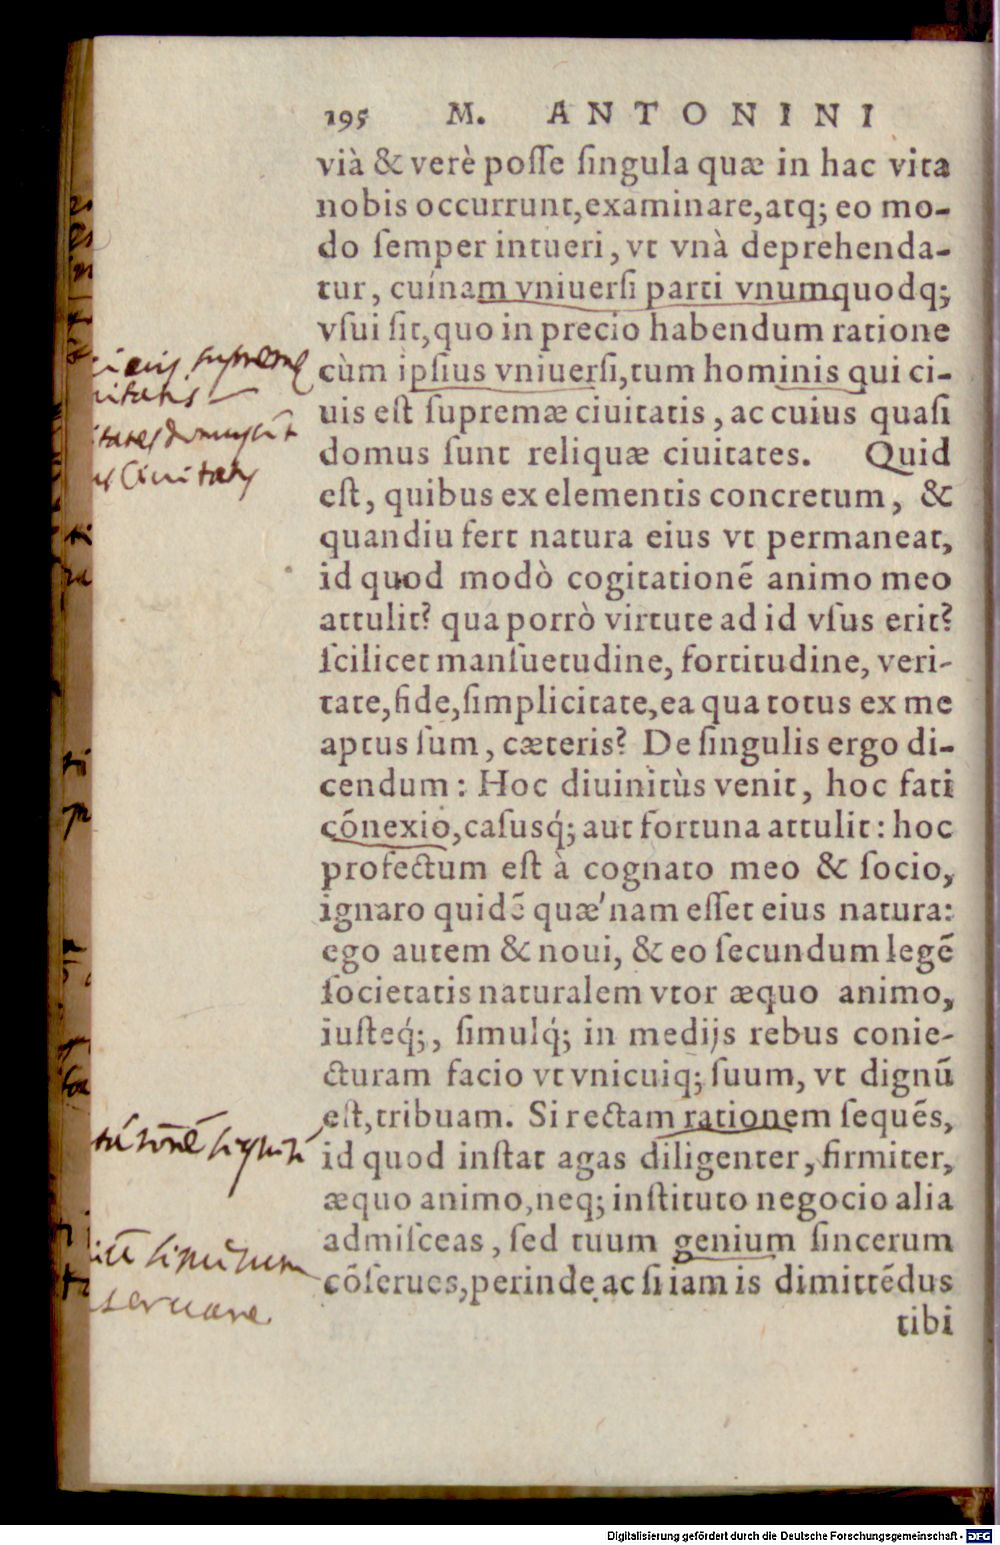 195 M. ANTONINI
vià & verè poſſe ſingula quæ in hac vita
nobis occurrunt, examinare, atq; eo mo-
do ſemper intueri, vt vnà deprehenda-
tur, cuínam vniuerſi parti vnumquodq;
vſui ſit, quo in precio habendum ratione
cùm ipſius vniuerſi, tum hominis qui ci-
uis eſt ſupremæ ciuitatis, ac cuius quaſi
domus ſunt reliquæ ciuitates. Quid
eſt, quibus ex elementis concretum, &
quandiu fert natura eius vt permaneat,
id quod modò cogitationē animo meo
attulit? qua porrò virtute ad id vſus erit?
ſcilicet manſuetudine, fortitudine, veri-
tate, fide, ſimplicitate, ea qua totus ex me
aptus ſum, cæteris? De ſingulis ergo di-
cendum: Hoc diuinitùs venit, hoc fati
cōnexio, caſusq́; aut fortuna attulit: hoc
profectum eſt à cognato meo & ſocio,
ignaro quidē quæ'nam eſſet eius natura:
ego autem & noui, & eo ſecundum legē
ſocietatis naturalem vtor æquo animo,
iuſteq́;, ſimulq́; in medijs rebus conie-
cturam facio vt vnicuiq; ſuum, vt dignū
eſt, tribuam. Si rectam rationem ſequēs,
id quod inſtat agas diligenter, firmiter,
æquo animo, neq; inſtituto negocio alia
admiſceas, ſed tuum genium ſincerum
cōſerues, perinde ac ſi iam is dimittēdus
tibi
supremę
Ciuitatis
seruare
Digitalisierung gefördert durch die Deutsche Forschungsgemeinschaft - DFG